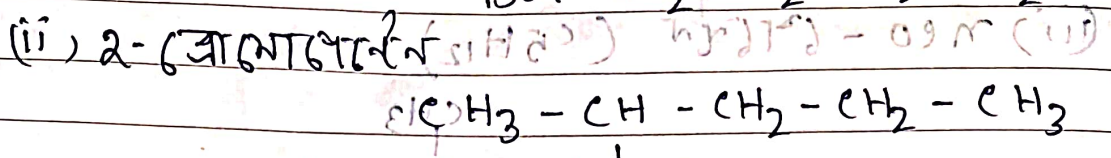 (ii) 2-ব্রোমোপেন্টেন
CH3 - CH - CH2 - CH2 - CH3